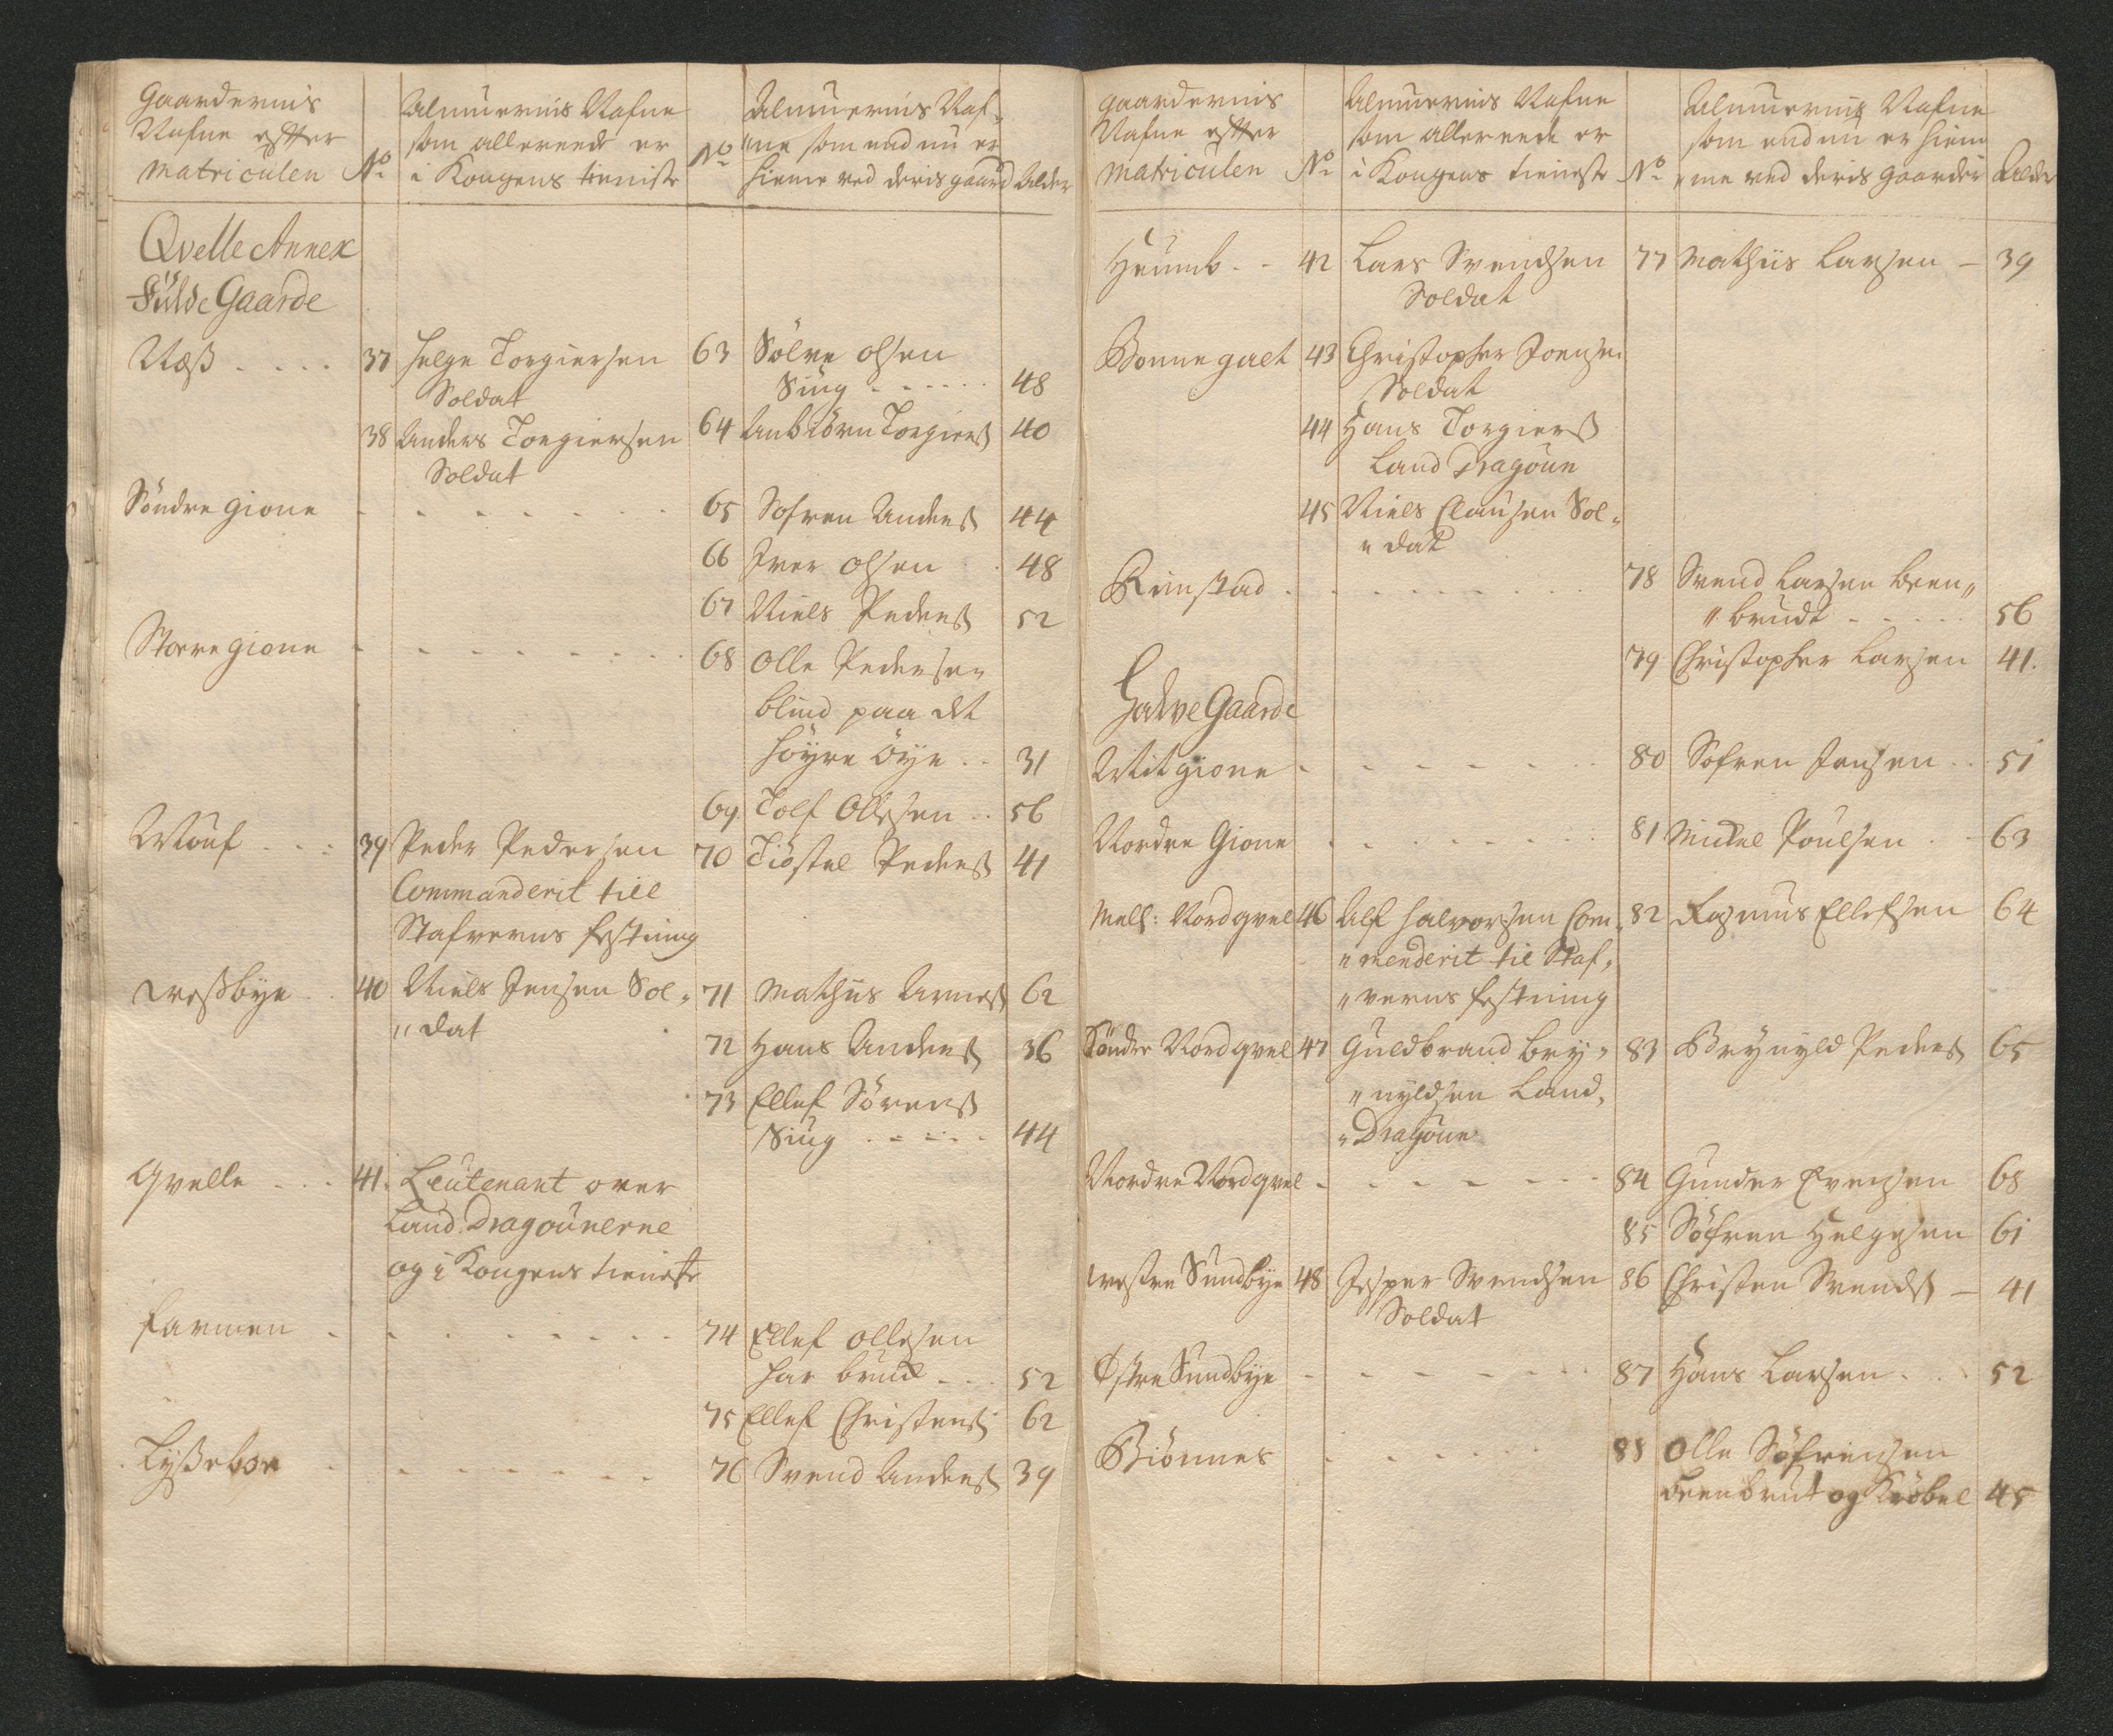 Gaardernis
Nafne effter
Matriculen
No
Almuernis Nafne
som allerrede er
i Kongens tieniste
No
Almuernis Naf-
"ne som end nu er
hieme ved deris gaard
Alder
Qvelle Annex
Fulde Gaarde
Næss . . . .
37 Helge Torgiersen
Soldat
63 Sölve Olsen
Siug . . . . . . 48
38 Anders Torgiersen
Soldat
64 Anbiörn Torgierss 40
Söndre gione
65 Sofren Anderss 44
66 Iver Olsen 48
67 Niels Pederss 52
Storregione
68 Olle Pedersen
blind paa det
höyre öye . . 31
69 Tolf Ollesen . . 56
39 Peder Pedersen
Commanderit till
Stafverns festning
70 Tiöstel Pederss 41
Wessbye . .
40 Niels Jensen Sol-
"dat
71 Mathis Arness 62
72 Hans Anderss 36
73 Ellef Sörenss
Siug . . . . . 44
Qvelle . . .
41. Leutenant over
Land Dragounerne
og i Kongens tieneste
Farmen
74 Ellef Ollesen
har brud . . . 52
75 Ellef Christenss 62
Lysseboe
76 Svend Anderss 39
Gaardernis
Nafne effter
Matriculen
No
Almuernis Nafne
som allerrede er
i Kongens tieneste
No
Almuernis Nafne
som end nu er hiem
"me ved deris gaarder
Alder
Heumb . .
42 Lars Svendsen
Soldat
77 Mathiis Larsen - 39
Bonnegaet
43 Christopher Joensen
Soldat
44 Hans Torgierss
Land Dragoun
45 Niels Clausen Sol-
"dat
Rimstad .
78 Svend Larsen been"
"brudt . . . . . 56
79 Christopher Larsen 41.
Halve Gaarde
Witgione
80 Sofren Jensen . . 51
Nordre Gione
81 Mickel Poulsen . 63
Mell: Nordqvel
46 Alf Halvorsen Com-
"menderit til Staf-
"verns festning
82 Rasmus Ellefsen 64
Söndre Nordqvel
47 Guldbrand Bry-
"nyldsen Land-
"Dragoun
83 Brynyld Pederss 65
Nordre Nordqvel
84 Gunder Evensen 68
85 Söfren Helgesen 61
Westre Sundbye
48 Jesper Svendsen
Soldat
86 Christen Svendss - 41
Østre Sundbye
87 Hans Larsen . . . 52
Biönnes
88 Olle Söfrensen
Beenbrut og Kröbel 45